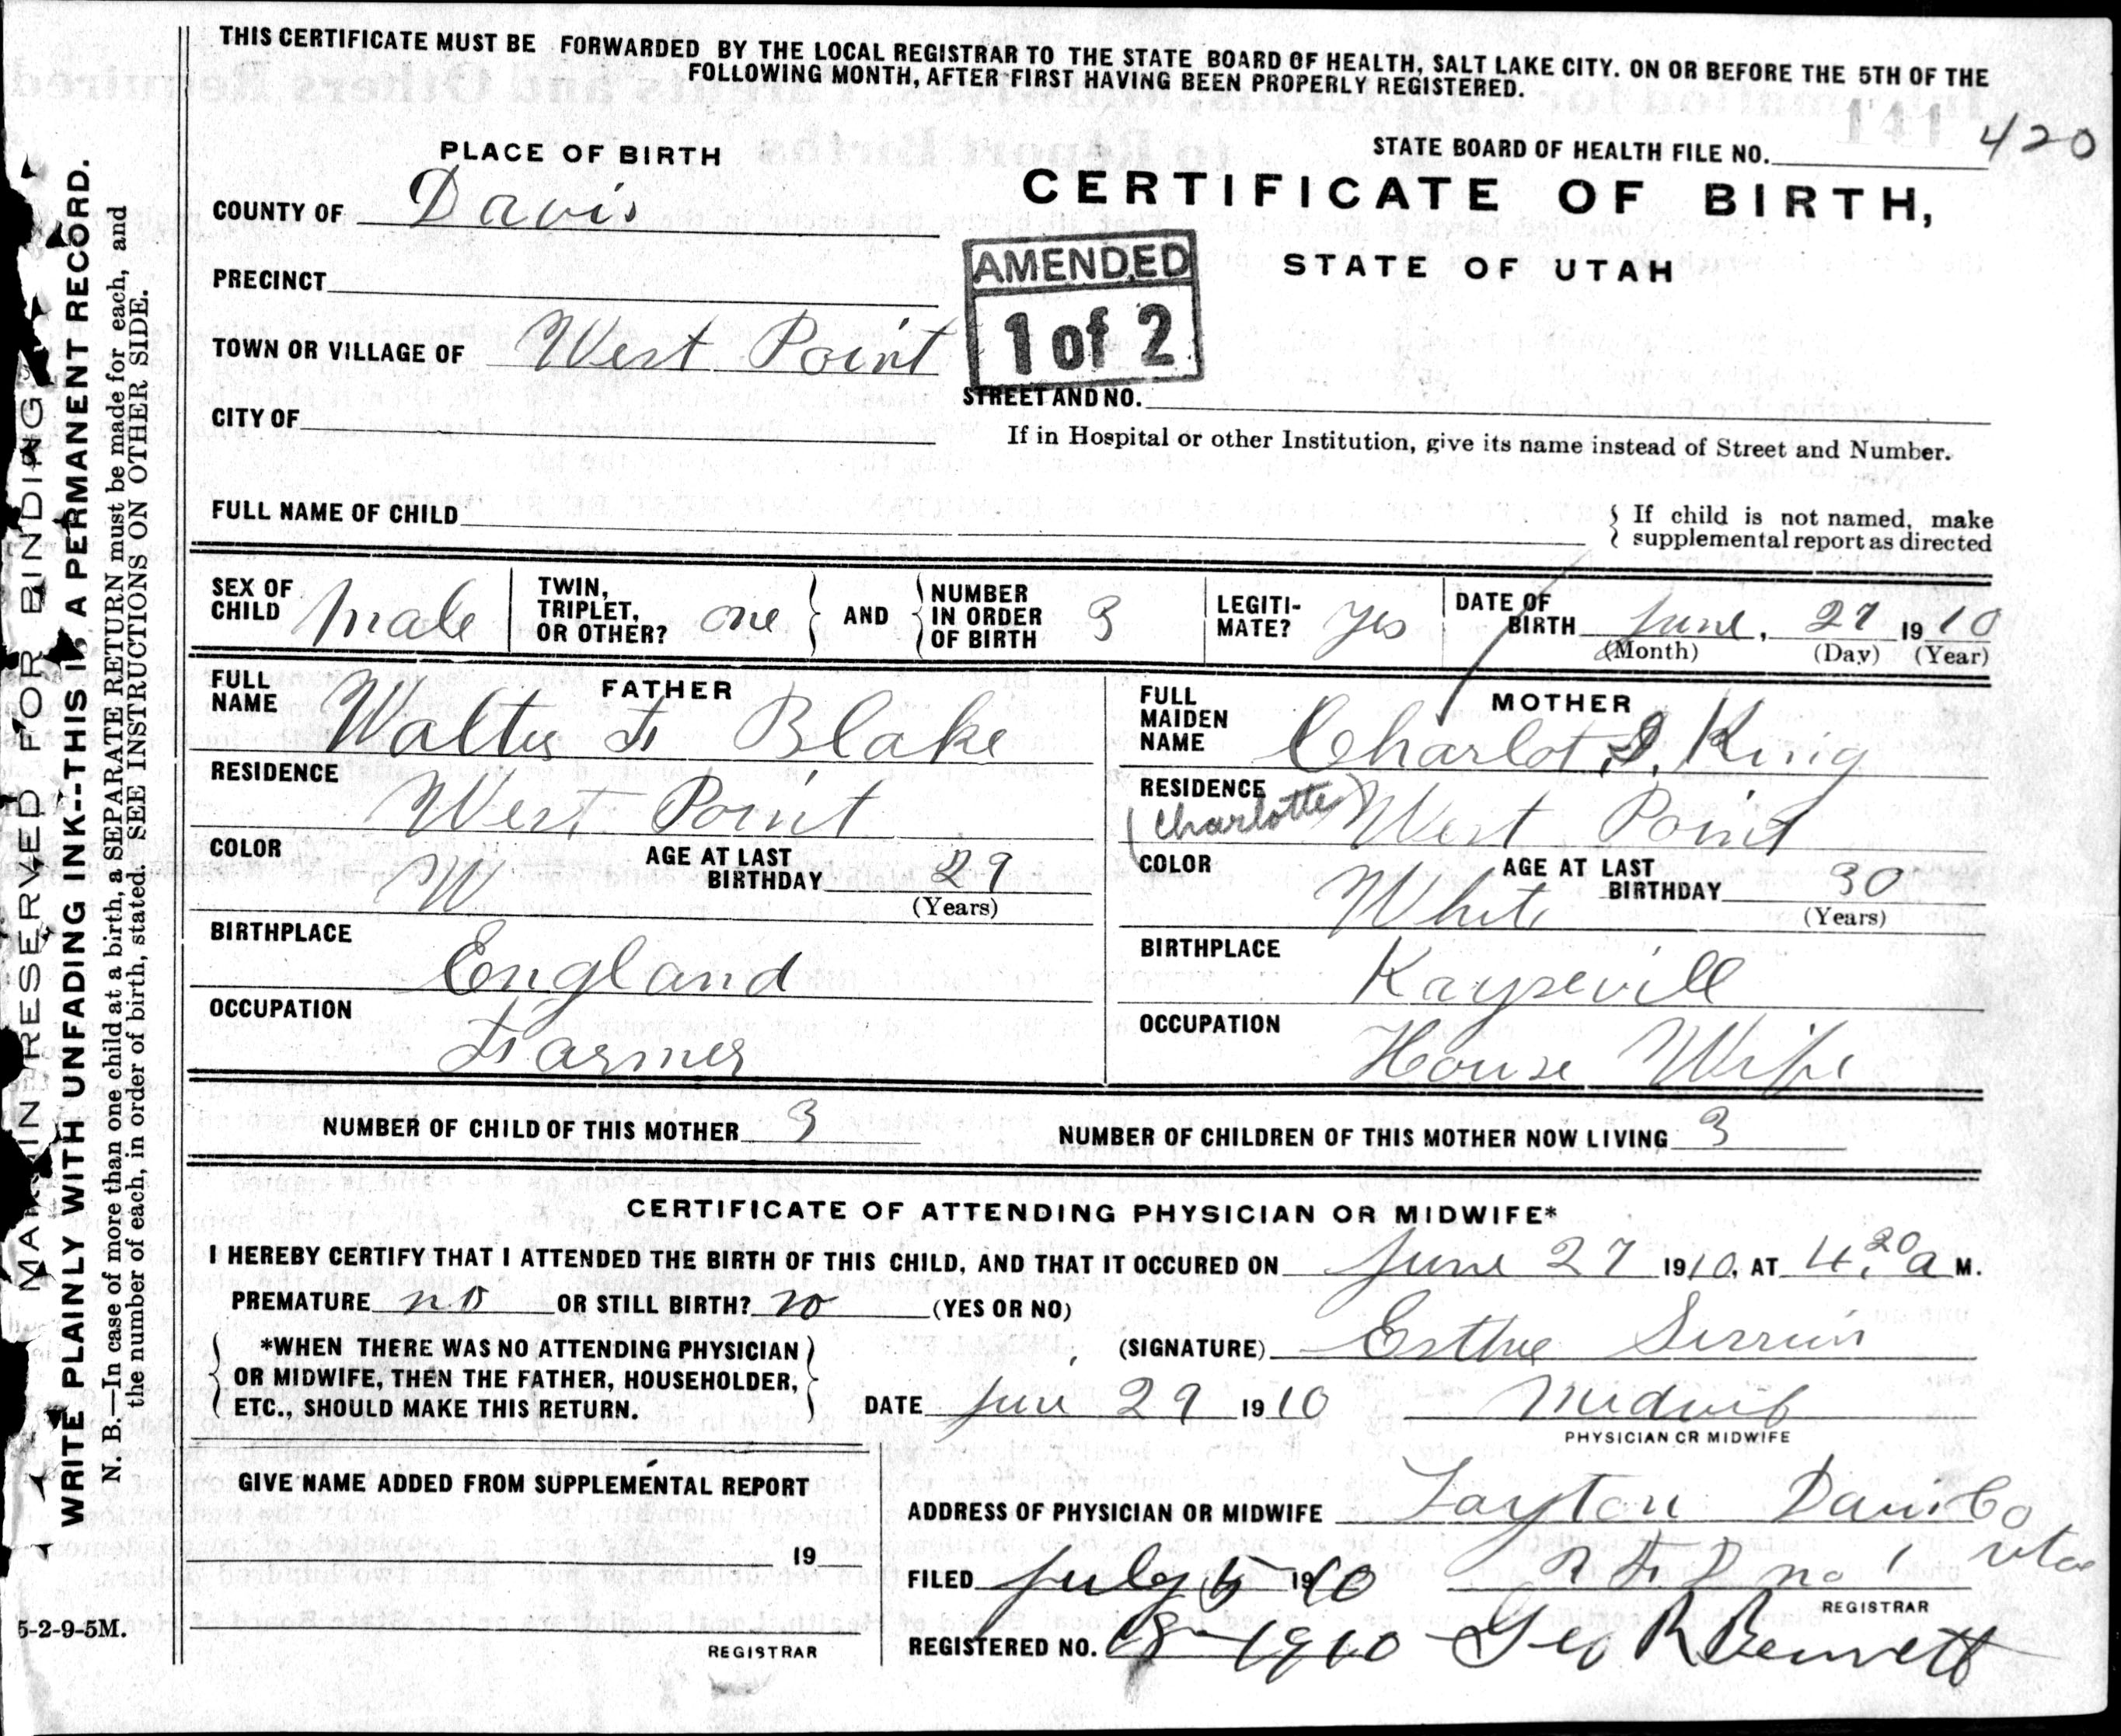 THIS CERTIFICATE MUST BE FORWARDED BY THE LOCAL REGISTRAR TO THE STATE BOARD OF HEALTH, SALT LAKE CITY. ON OR BEFORE THE 5TH OF THE
FOLLOWING MONTH, AFTER FIRST HAVING BEEN PROPERLY REGISTERED.
PLACE OF BIRTH
STATE BOARD OF HEALTH FILE NO. 420
COUNTY OF Davis
CERTIFICATE OF BIRTH,
STATE OF UTAH
AMENDED
1 of 2
PRECINCT
TOWN OR VILLAGE OF West Point
STREET AND NO.
CITY OF
If in Hospital or other Institution, give its name instead of Street and Number.
FULL NAME OF CHILD
If child is not named, make
supplemental report as directed
SEX OF CHILD male
TWIN, TRIPLET, OR OTHER? one
AND
NUMBER IN ORDER OF BIRTH 3
LEGITI- MATE? yes
DATE OF BIRTH June, 27 1910
(Month) (Day) (Year)
FATHER
FULL NAME Walter F Blake
RESIDENCE West Point
COLOR W
AGE AT LAST BIRTHDAY 29
(Years)
BIRTHPLACE England
OCCUPATION Farmer
MOTHER
FULL MAIDEN NAME Charlot S. King
(Charlotte)
RESIDENCE West Point
COLOR White
AGE AT LAST BIRTHDAY 30
(Years)
BIRTHPLACE Kaysevill
OCCUPATION House Wife
NUMBER OF CHILD OF THIS MOTHER 3
NUMBER OF CHILDREN OF THIS MOTHER NOW LIVING 3
CERTIFICATE OF ATTENDING PHYSICIAN OR MIDWIFE*
I HEREBY CERTIFY THAT I ATTENDED THE BIRTH OF THIS CHILD, AND THAT IT OCCURED ON June 27 1910, AT 4.20 a M.
PREMATURE no OR STILL BIRTH? no (YES OR NO)
*WHEN THERE WAS NO ATTENDING PHYSICIAN
OR MIDWIFE, THEN THE FATHER, HOUSEHOLDER,
ETC., SHOULD MAKE THIS RETURN.
(SIGNATURE) Esther
DATE June 29 1910 Midwif
PHYSICIAN OR MIDWIFE
GIVE NAME ADDED FROM SUPPLEMENTAL REPORT
19
REGISTRAR
ADDRESS OF PHYSICIAN OR MIDWIFE Layton Davis Co
R F D no 1 utah
FILED July 5 1910
REGISTRAR
REGISTERED NO. 18-1910 Geo R Bennett
5-2-9-5M.
MARGIN RESERVED FOR BINDING
WRITE PLAINLY WITH UNFADING INK--THIS IS A PERMANENT RECORD.
N. B.—In case of more than one child at a birth, a SEPARATE RETURN must be made for each, and
the number of each, in order of birth, stated. SEE INSTRUCTIONS ON OTHER SIDE.